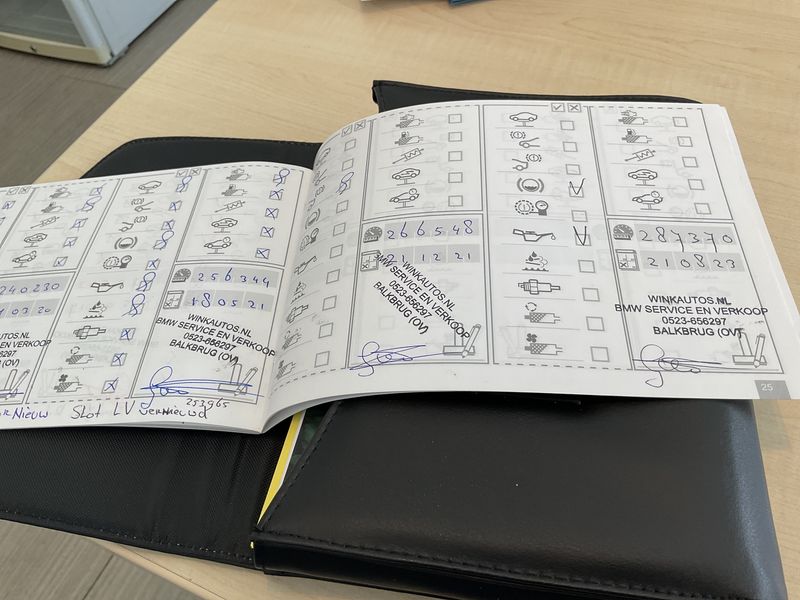 240230
WINKAUTOS.NL
256344
180521
WINKAUTOS.NL
BMW SERVICE EN VERKOOP
0523-656297
BALKBRUG (OV)
253965
Nieuw Slot LV vernieuwd
266548
21 12 21
WINKAUTOS.NL
BMW SERVICE EN VERKOOP
0523-656297
BALKBRUG (OV)
287370
210823
WINKAUTOS.NL
BMW SERVICE EN VERKOOP
0523-656297
BALKBRUG (OV)
25